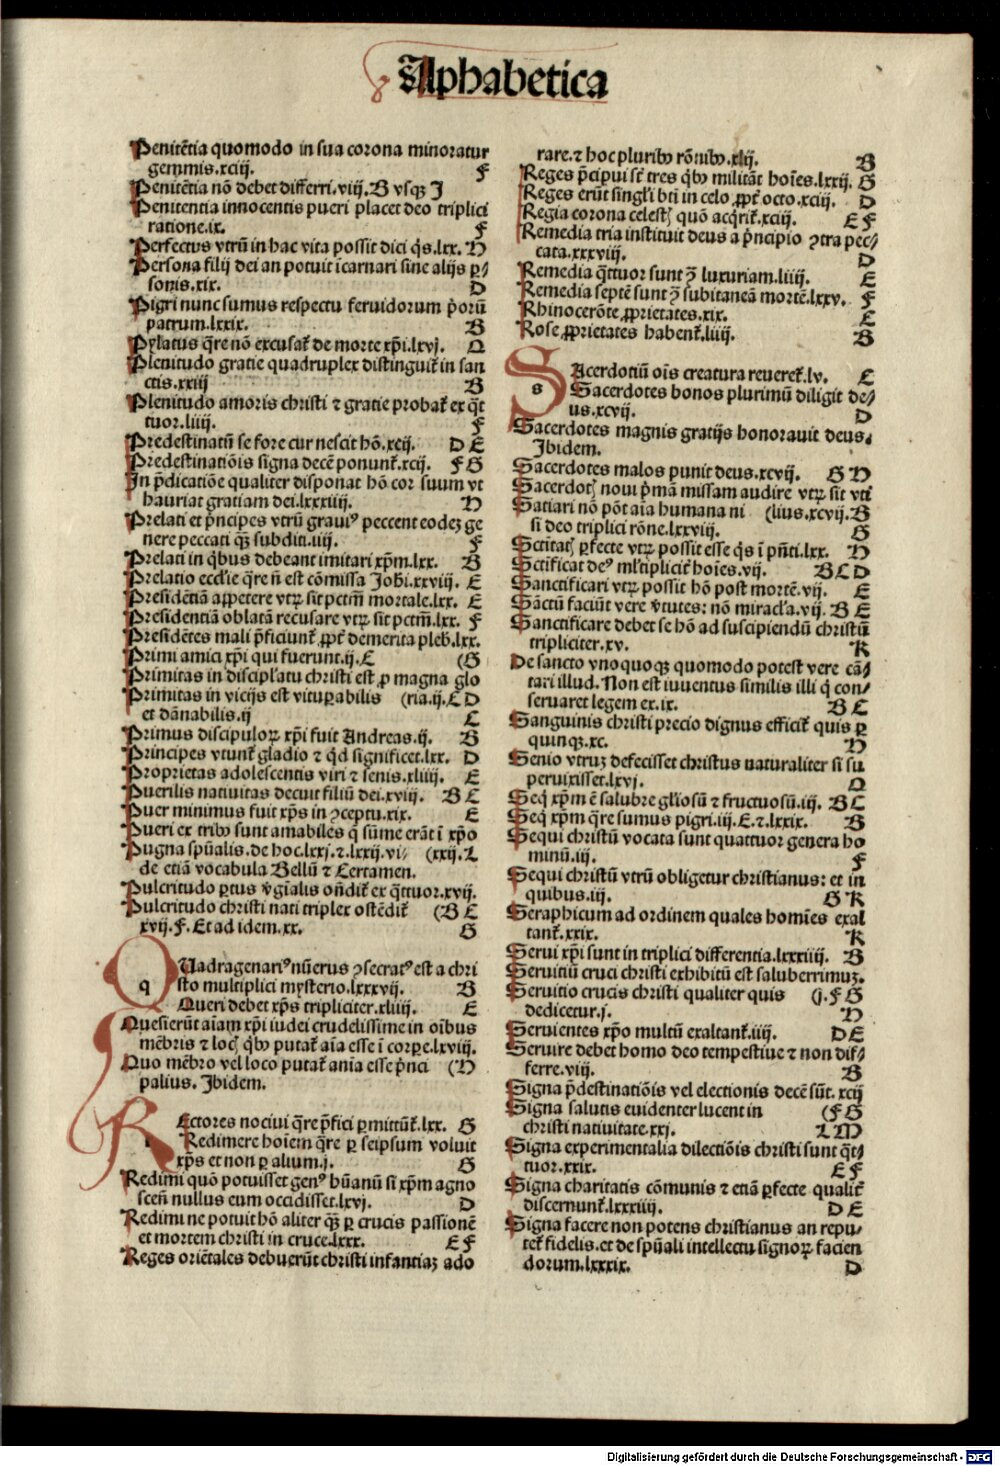 Alphabetica
Penitētia quomodo in sua corona minoratur
gemmis.xciij. F
Penitētia nō debet differri.viij.B vsqꝫ J
Penitentia innocentis pueri placet deo triplici
ratione.ix. F
Perfectus vtrū in hac vita possit dici q̇s.lxx. H
Persona filij dei an potuit īcarnari sine alijs ꝑ⸗
sonis.xix. D
Pigri nunc sumus respectu feruidorum p̓orū
patrum.lxxix. B
Pylatus q̄re nō excusat᷑ de morte xp̄i.lxvj. Q
Plenitudo gratie quadruplex distinguit᷑ in san
ctis.xxiij B
Plenitudo amoris christi ⁊ gratie probat᷑ ex q̄t
tuor.liiij. F
Predestinatū se fore cur nescit hō.xcij. D E
Predestinatiōis signa decē ponunt᷑.xcij. F G
In p̄dicatiōe qualiter disponat hō cor suum vt
hauriat gratiam dei.lxxxiiij. H
Prelati et p̓ncipes vtrū grauiꝰ peccent eodeꝫ ge
nere peccati qꝫ̄ subditi.iiij. F
Prelati in q̇bus debeant imitari xp̄m.lxx. B
Prelatio eccl̓ie q̄re ñ est cōmissa Joh̄i.xxviij. E
Presidētiā appetere vtꝝ sit pctm̄ mortale.lxx. E
Presidentiā oblatā recusare vtꝝ sit pctm̄.lxx. F
Presidētes mali p̄ficiunt᷑ ꝓpt̄ demerita pleb̄.lxx.
Primi amici xp̄i qui fuerunt.ij.C (G
Primitas in discipl̓atu christi est ꝓ magna glo
Primitas in vicijs est vituꝑabilis (ria.ij.C D
et dānabilis.ij C
Primus discipuloꝝ xp̄i fuit Andreas.ij. B
Principes vtunt᷑ gladio ⁊ q̇d significet.lxx. D
Proprietas adolescentis viri ⁊ senis.xliiij. E
Puerilis natiuitas decuit filiū dei.xviij. B C
Puer minimus fuit xp̄s in ꝯceptu.xix. E
Pueri ex tribꝰ sunt amabiles q̄ sūme erāt ī xp̄o
Pugna sp̄ualis.de hoc.lxxj.⁊.lxxij.vi⸗ (xxij.L
de etiā vocabula Bellū ⁊ Certamen.
Pulcritudo ꝑtus v̓gīalis oñdit᷑ ex q̄ttuor.xvij.
Pulcritudo christi nati triplex ostēdit᷑ (B C
xvij.F.Et ad idem.xx. G
q QUadragenariꝰ nūerus ꝯsecratꝰ est a chri
sto multiplici mysterio.lxxxvij. B
Queri debet xp̄s tripliciter.xliiij. E
Quesierūt aīam xp̄i iudei crudelissime in oībus
mēbris ⁊ locꝭ q̇bꝰ putat᷑ aīa esse ī corꝑe.lxviij.
Quo mēbro vel loco putat᷑ anīa esse p̓nci (H
palius. Ibidem.
REctores nociui q̄re p̄fici ꝑmittūt᷑.lxx. G
Redimere hoīem q̄re ꝑ seipsum voluit
xp̄s et non ꝑ alium.j. G
Redimi quō potuisset genꝰ hūanū si xp̄m agno
scen̄ nullus eum occidisset.lxvj. D
Redimi ne potuit hō aliter qꝫ̄ ꝑ crucis passionē
et mortem christi in cruce.lxxx. E F
Reges oriētales debuerūt christi infantiaꝫ ado
rare.⁊ hoc pluribꝰ rōnibꝰ.xlij. B
Reges p̄cipui sr̄t tres q̇bꝰ militāt hoīes.lxxij. G
Reges erūt singl̓i bt̄i in celo ꝓpt̄ octo.xciij. D
Regia corona celestꝭ quō acq̇rit᷑.xciij. E F
Remedia tria instituit deus a p̓ncipio ꝯtra pec⸗
cata.xxxviij. D
Remedia q̄ttuor sunt ꝯ̄ luxuriam.liiij. E
Remedia septē sunt ꝯ̄ subitaneā mortē.lxxv. F
Rhinocerōte ꝓprietates.xix. E
Rose ꝓprietates habent᷑.liiij. B
s SAcerdotiū oīs creatura reueret᷑.lv. C
Sacerdotes bonos plurimū diligit de⸗
us.xcvij. D
Sacerdotes magnis gratijs honorauit deus.
Ibidem.
Sacerdotes malos punit deus.xcvij. G H
Sacerdotꝭ noui p̓mā missam audire vtꝝ sit vti
Satiari nō pōt aīa humana ni (lius.xcvij.B
si deo triplici rōne.lxxviij. G
Sctitatꝭ ꝑfecte vtꝝ possit esse q̇s ī pn̄ti.lxx. H
Sctificat deꝰ ml̓tiplicit᷑ hoīes.vij. B C D
Sanctificari vtꝝ possit hō post mortē.vij. E
Sāctū faciūt vere v̓tutes: nō miracl̓a.vij. B E
Sanctificare debet se hō ad suscipiendū christū
tripliciter.xv. K
De sancto vnoquoqꝫ quomodo potest vere cā⸗
tari illud. Non est inuentus similis illi q̇ con⸗
seruaret legem ex.ix. B C
Sanguinis christi precio dignus efficit᷑ quis ꝑ
quinqꝫ.xc. H
Senio vtruꝫ defecisset christus naturaliter si su
peruixisset.lxvj. Q
Seq̇ xp̄m ē salubre gl̓iosū ⁊ fructuosū.iij. B C
Seq̇ xp̄m q̄re sumus pigri.iij.E.⁊.lxxix. B
Sequi christū vocata sunt quattuor genera ho
minū.iij. F
Sequi christū vtrū obligetur christianus: et in
quibus.iij. G K
Seraphicum ad ordinem quales homīes exal
tant᷑.xxix. K
Serui xp̄i sunt in triplici differentia.lxxxiiij. B
Seruitiū cruci christi exhibitū est saluberrimuꝫ.
Seruitio crucis christi qualiter quis (j.F G
dedicetur.j. H
Seruientes xp̄o multū exaltant᷑.iiij. D E
Seruire debet homo deo tempestiue ⁊ non dif⸗
ferre.viij. B
Signa p̄destinatiōis vel electionis decē sūt.xcij
Signa salutis euidenter lucent in (F G
christi natiuitate.xxj. L M
Signa experimentalia dilectiōis christi sunt q̄t⸗
tuor.xxix. E F
Signa charitatis cōmunis ⁊ etiā ꝑfecte qualit᷑
discernunt᷑.lxxxiij. D E
Signa facere non potens christianus an repu⸗
tet᷑ fidelis.et de sp̄uali intellectu signoꝝ facien
dorum.lxxxix. D
Digitalisierung gefördert durch die Deutsche Forschungsgemeinschaft - DFG